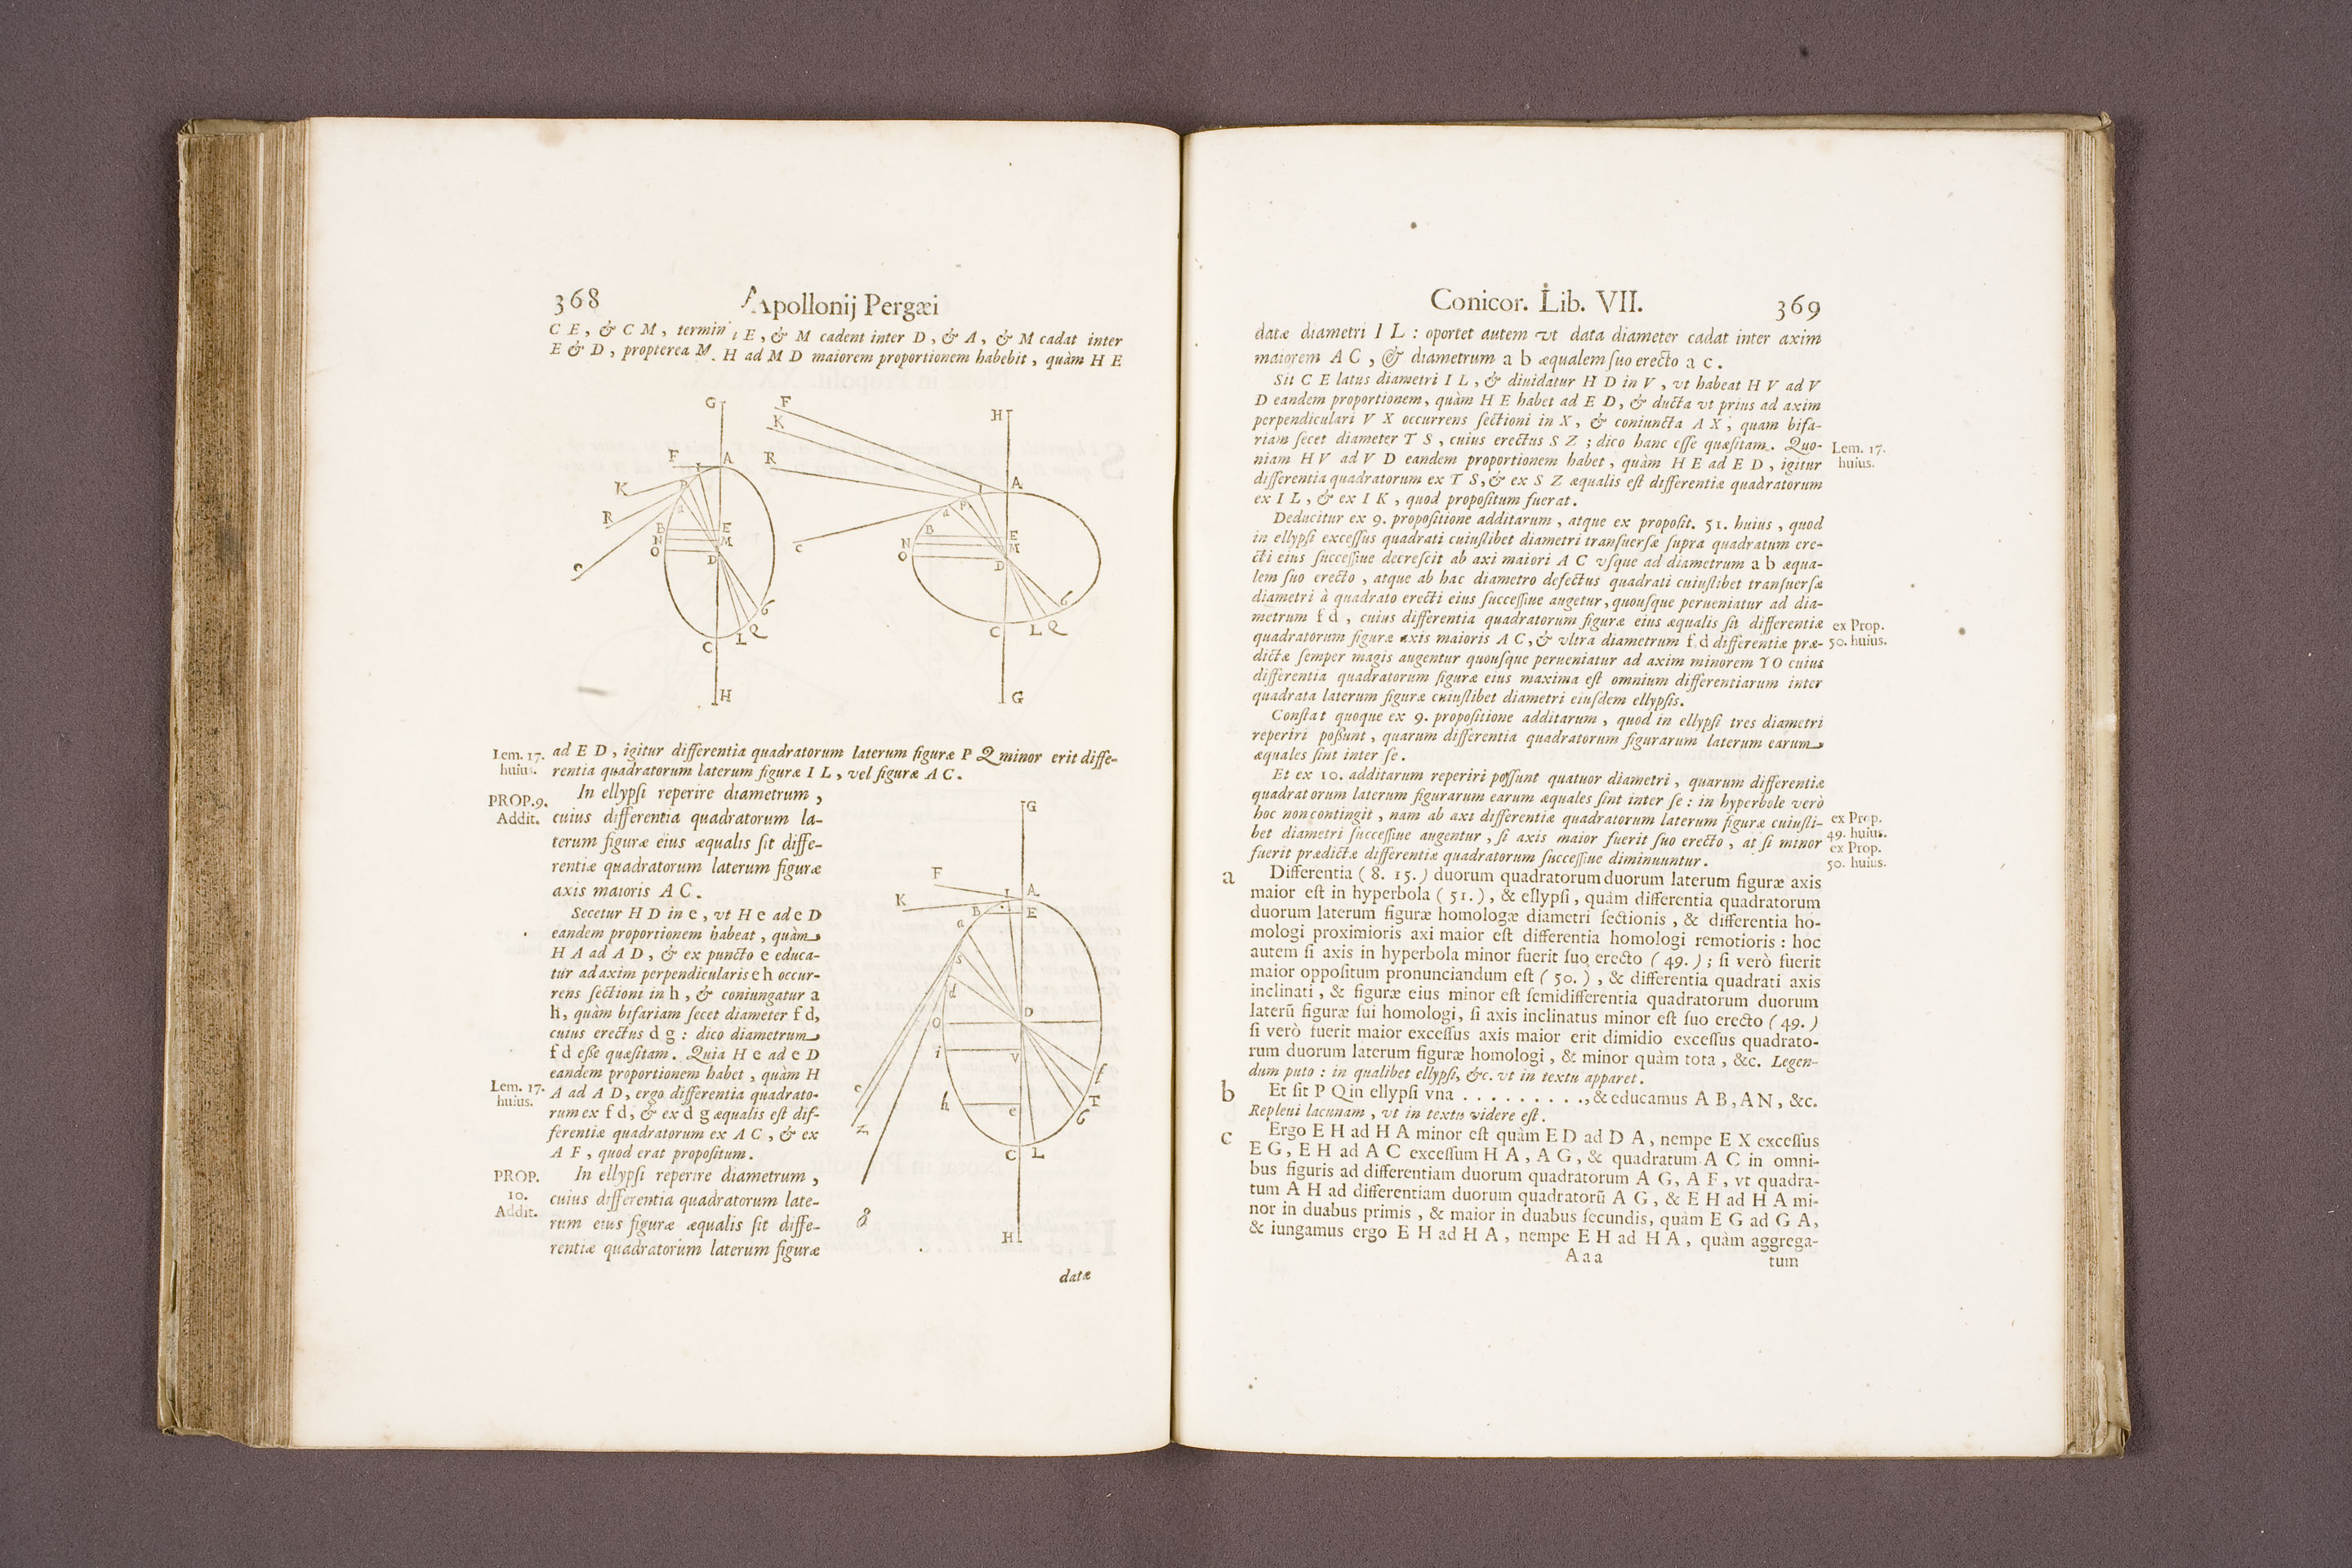 368 Apollonij Pergæi
C E, & C M, termini E, & M cadent inter D, & A, & M cadat inter
E & D, propterea M H ad M D maiorem proportionem habebit, quàm H E
G
F
K
H
F
I
A
R
K
R
B
N
O
E
M
D
c
C
L
Q
H
I
A
a
P
B
N
O
E
M
D
c
C
L
Q
G
Lem. 17.
huius.
ad E D, igitur differentia quadratorum laterum figuræ P Q minor erit diffe-
rentia quadratorum laterum figuræ I L, vel figuræ A C.
PROP.9.
Addit.
In ellypſi reperire diametrum,
cuius differentia quadratorum la-
terum figuræ eius æqualis ſit diffe-
rentiæ quadratorum laterum figuræ
axis maioris A C.
Secetur H D in e, vt H e ad e D
eandem proportionem habeat, quàm
H A ad A D, & ex puncto e educa-
tur ad axim perpendicularis e h occur-
rens ſectioni in h, & coniungatur a
h, quàm bifariam ſecet diameter f d,
cuius erectus d g: dico diametrum
f d eſſe quæſitam. Quia H e ad e D
eandem proportionem habet, quàm H
Lem. 17.
huius.
A ad A D, ergo differentia quadrato-
rum ex f d, & ex d g æqualis eſt dif-
ferentiæ quadratorum ex A C, & ex
A F, quod erat propoſitum.
PROP.
10.
Addit.
In ellypſi reperire diametrum,
cuius differentia quadratorum late-
rum eius figuræ æqualis ſit diffe-
rentiæ quadratorum laterum figuræ
G
F
I
A
K
B
E
a
s
d
D
O
i
V
f
c
h
e
T
b
Z
C
L
g
H
datæ
Conicor. Lib. VII. 369
datæ diametri I L: oportet autem vt data diameter cadat inter axim
maiorem A C, & diametrum a b æqualem ſuo erecto a c.
Sit C E latus diametri I L, & diuidatur H D in V, vt habeat H V ad V
D eandem proportionem, quàm H E habet ad E D, & ducta vt prius ad axim
perpendiculari V X occurrens ſectioni in X, & coniuncta A X; quam bifa-
riam ſecet diameter T S, cuius erectus S Z; dico hanc eſſe quæſitam. Quo-
Lem. 17.
huius.
niam H V ad V D eandem proportionem habet, quàm H E ad E D, igitur
differentia quadratorum ex T S, & ex S Z æqualis eſt differentiæ quadratorum
ex I L, & ex I K, quod propoſitum fuerat.
Deducitur ex 9. propoſitione additarum, atque ex propoſit. 51. huius, quod
in ellypſi exceſſus quadrati cuiuſlibet diametri tranſuerſæ ſupra quadratum ere-
cti eius ſucceſſiue decreſcit ab axi maiori A C vſque ad diametrum a b æqua-
lem ſuo erecto, atque ab hac diametro defectus quadrati cuiuſlibet tranſuerſæ
diametri à quadrato erecti eius ſucceſſiue augetur, quouſque perueniatur ad dia-
metrum f d, cuius differentia quadratorum figuræ eius æqualis ſit differentiæ
ex Prop.
50. huius.
quadratorum figuræ axis maioris A C, & vltra diametrum f d differentiæ præ-
dictæ ſemper magis augentur quouſque perueniatur ad axim minorem Y O cuius
differentia quadratorum figuræ eius maxima eſt omnium differentiarum inter
quadrata laterum figuræ cuiuſlibet diametri eiuſdem ellypſis.
Conſtat quoque ex 9. propoſitione additarum, quod in ellypſi tres diametri
reperiri poßunt, quarum differentia quadratorum figurarum laterum earum
æquales ſint inter ſe.
Et ex 10. additarum reperiri poſſunt quatuor diametri, quarum differentiæ
quadratorum laterum figurarum earum æquales ſint inter ſe: in hyperbole verò
hoc non contingit, nam ab axi differentiæ quadratorum laterum figuræ cuiuſli-
ex Prop.
49. huius.
bet diametri ſucceſſiue augentur, ſi axis maior fuerit ſuo erecto, at ſi minor
ex Prop.
50. huius.
fuerit prædictæ differentiæ quadratorum ſucceſſiue diminuuntur.
a Differentia (8. 15.) duorum quadratorum duorum laterum figuræ axis
maior eſt in hyperbola (51.), & ellypſi, quàm differentia quadratorum
duorum laterum figuræ homologæ diametri ſectionis, & differentia ho-
mologi proximioris axi maior eſt differentia homologi remotioris: hoc
autem ſi axis in hyperbola minor fuerit ſuo erecto (49.); ſi verò fuerit
maior oppoſitum pronunciandum eſt (50.), & differentia quadrati axis
inclinati, & figuræ eius minor eſt ſemidifferentia quadratorum duorum
laterũ figuræ ſui homologi, ſi axis inclinatus minor eſt ſuo erecto (49.)
ſi verò fuerit maior exceſſus axis maior erit dimidio exceſſus quadrato-
rum duorum laterum figuræ homologi, & minor quàm tota, &c. Legen-
dum puto: in qualibet ellypſi, &c. vt in textu apparet.
b Et ſit P Q in ellypſi vna . . . . . . . . ., & educamus A B, A N, &c.
Repleui lacunam, vt in textu videre eſt.
c Ergo E H ad H A minor eſt quàm E D ad D A, nempe E X exceſſus
E G, E H ad A C exceſſum H A, A G, & quadratum A C in omni-
bus figuris ad differentiam duorum quadratorum A G, A F, vt quadra-
tum A H ad differentiam duorum quadratorũ A G, & E H ad H A mi-
nor in duabus primis, & maior in duabus ſecundis, quàm E G ad G A,
& iungamus ergo E H ad H A, nempe E H ad H A, quàm aggrega-
A a a tum